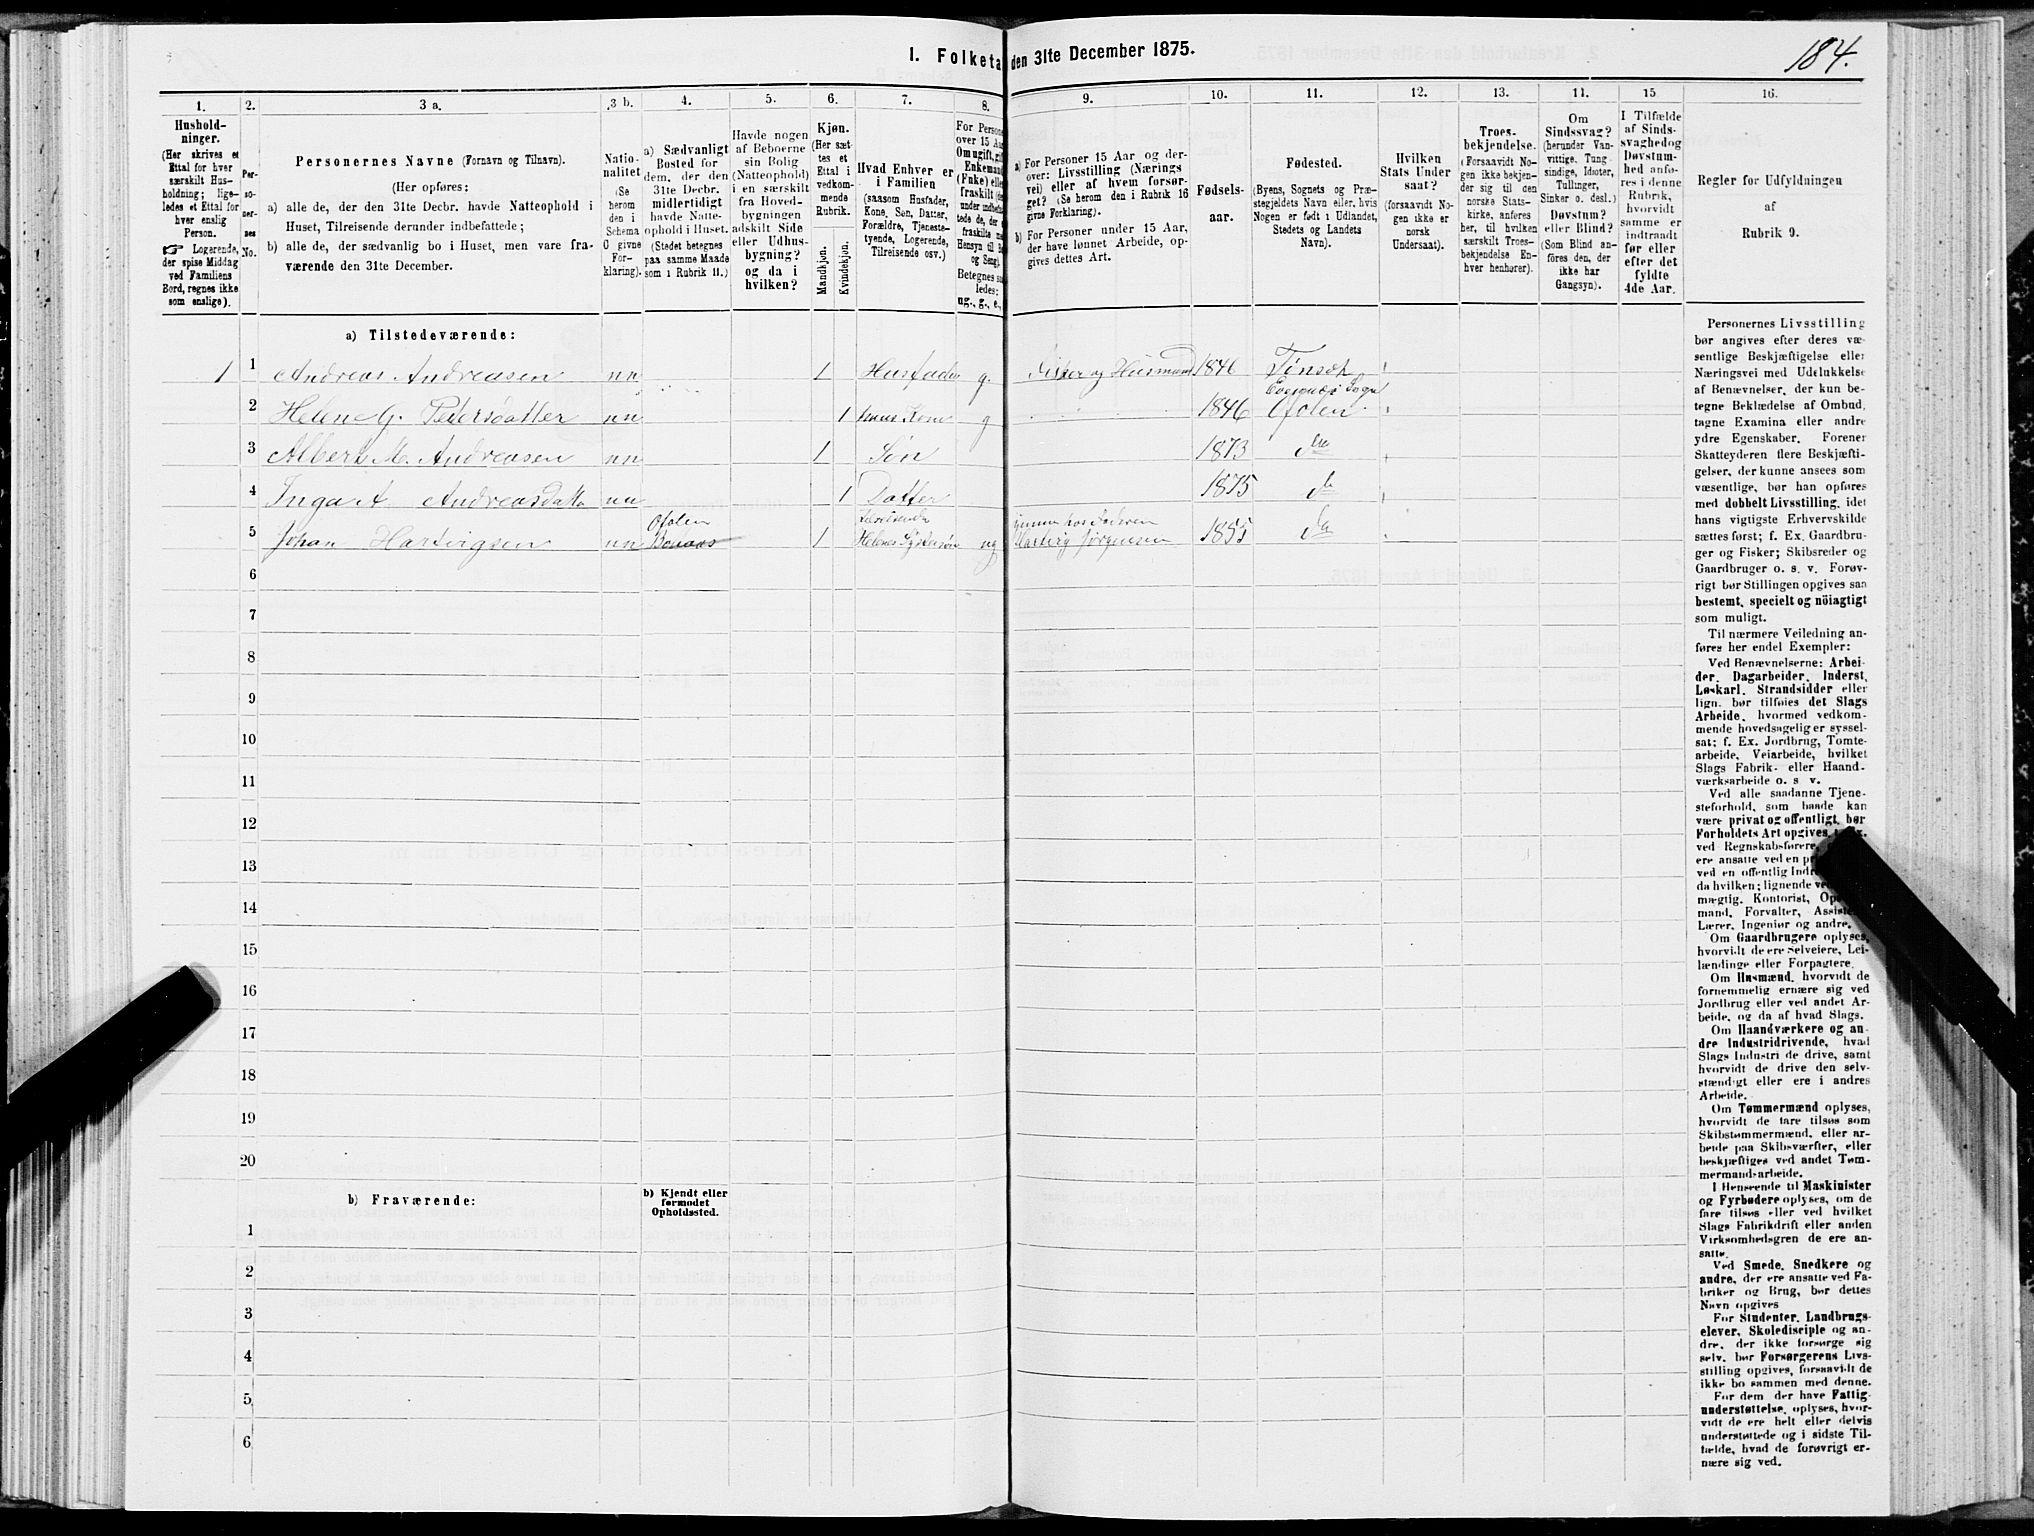 184.
I. Folketa den 31te December 1875.
1. 2. 3 a. 3 b. 4. 5. 6. 7. 8. 9. 10. 11. 12. 13. 11. 15 16.
Hushold-
ninger.
(Her skrives et
Ettal for hver
særskilt Hus-
holdning; lige-
ledes et Ettal for
hver enslig
Person.
☞ Logerende,
der spise Middag
ved Familiens
Bord, regnes ikke
som enslige).
Per-
so-
ner-
nes
No.
Personernes Navne (Fornavn og Tilnavn).
(Her opføres:
a) alle de, der den 31te Decbr. havde Natteophold i
Huset, Tilreisende derunder indbefattede;
b) alle de, der sædvanlig bo i Huset, men vare fra-
værende den 31te December.
Natio-
nalitet
(Se
herom
den i
Schema
C givne
For-
klaring).
a) Sædvanligt
Bosted for
dem, der den
31te Decbr.
midlertidigt
havde Natte-
ophold i Huset.
(Stedet betegnes
paa samme Maade
som i Rubrik 11.)
Havde nogen
af Beboerne
sin Bolig
(Natteophold)
i en særskilt
fra Hoved-
bygningen
adskilt Side
eller Udhus-
bygning?
og da i
hvilken?
Kjøn.
(Her sæt-
tes et
Ettal i
vedkom-
mende
Rubrik.
Mandkjøn.
Kvindekjøn.
Hvad Enhver er
i Familien
(saasom Husfader,
Kone, Søn, Datter,
Forældre, Tjeneste-
tyende, Logerende,
Tilreisende osv.)
For Persone
over 15 Aar
Om ugift, gift
Enkemand
(Enke) eller
fraskilt
Betegnes saa
ledes:
ug., g., e.,
a) For Personer 15 Aar og der-
over: Livsstilling (Nærings
vei) eller af hvem forsør-
get? (Se herom den i Rubrik 16
givne Forklaring).
b) For Personer under 15 Aar,
der have lønnet Arbeide, op-
gives dettes Art.
Fødsels-
aar.
Fødested.
(Byens, Sognets og Præ-
stegjeldets Navn eller, hvis
Nogen er født i Udlandet,
Stedets og Landets
Navn).
Hvilken
Stats Under
saat?
(forsaavidt No-
gen ikke er
norsk
Undersaat).
Troes-
bekjendelse.
(Forsaavidt No-
gen ikke bekjen-
der sig til den
norske Stats-
kirke, anføres
her, til hvilken
særskilt Troes-
bekjendelse En-
hver henhører).
Om
Sindssvag?
(herunder Van-
vittige, Tung
sindige, Idioter,
Tullinger,
Sinker o. desl.)
Døvstum?
eller Blind?
(Som Blind an-
føres den, der
ikke har
Gangsyn).
I Tilfælde
af Sinds-
svaghed og
Døvstum-
hed anfø-
res i denne
Rubrik,
hvorvidt
samme er
indtraadt
før eller
efter det
fyldte
4de Aar.
Regler for Udfyldningen
af
Rubrik 9.
a) Tilstedeværende:
1 1 Andreas Andreasen nn 1 Husfader g. Fisker og Husmand 1846 Tinsæt
Evennæs Sogn
2 Helen G. Petersdatter nn 1 hans Kone g 1846 Ofoten
3 Albert M. Andreasen nn 1 Søn 1873 do
4 Inga A Andreasdatt nn 1 Datter 1875 do
5 Johan Hartvigsen nn Ofoten 1 Helenes Søstersøn ug hjemme hos Faderen Hartvig Jørgensen 1855 do
6
7
8
9
10
11
12
13
14
15
16
17
18
19
20
b) Fraværende:
b) Kjendt eller
formodet
Opholdssted.
1
2
3
4
5
6
Personernes Livsstilling
bør angives efter deres væ-
sentlige Beskjæftigelse eller
Næringsvei med Udelukkelse
af Benævnelser, der kun be-
tegne Beklædelse af Ombud,
tagne Examina eller andre
ydre Egenskaber. Forener
Skatteyderen flere Beskjæfti-
gelser, der kunne ansees som
væsentlige, bør han opføres
med dobbelt Livsstilling, idet
hans vigtigste Erhvervskilde
sættes først; f. Ex. Gaardbru-
ger og Fisker; Skibsreder og
Gaardbruger o. s. v. Forøv-
rigt bør Stillingen opgives saa
bestemt, specielt og nöiagtigt
som muligt.
Til nærmere Veiledning an-
føres her endel Exempler:
Ved Benævnelserne: Arbei-
der, Dagarbeider, Inderst,
Løskarl, Strandsidder eller
lign. bør tilføies det Slags
Arbeide, hvormed vedkom-
mende hovedsagelig er syssel-
sat; f. Ex. Jordbrug, Tomte-
arbeide, Veiarbeide, hvilket
Slags Fabrik- eller Haand-
værksarbeide o. s v.
Ved alle saadanne Tjene-
steforhold, som baade kan
være privat og offentligt, bør
Forholdets Art opgives,
ved Regnskabsførere,
ere ansatte ved en
ved en offentlig
da hvilken; lignende
mægtig, Kontorist,
mand, Forvalter,
Lærer, Ingeniør og andre.
Om Gaardbrugere oplyses,
hvorvidt de ere Selveiere, Lei-
lændinge eller Forpagtere.
Om Husmænd, hvorvidt de
fornemmelig ernære sig ved
Jordbrug eller ved andet Ar-
beide, og da af hvad Slags.
Om Haandværkere og an-
dre Industridrivende, hvad
Slags Industri de drive, samt
hvorvidt de drive den selv-
stændigt eller ere i andres
Arbeide.
Om Tømmermænd oplyses,
hvorvidt de fare tilsøs som
Skibstømmermænd, eller ar-
beide paa Skibsværfter, eller
beskjæftiges ved andet Tøm-
mermandsarbeide.
I Henseende til Maskinister
og Fyrbødere oplyses, om de
fare tilsøs eller ved hvilket
Slags Fabrikdrift eller anden
Virksomhedsgren de ere an-
satte.
Ved Smede, Snedkere og
andre, der ere ansatte ved Fa-
briker og Brug, bør dettes
Navn opgives
For Studenter, Landbrugs-
elever, Skoledisciple og an-
dre, der ikke forsørge sig
selv, bør Forsørgerens Livs-
stilling opgives, forsaavidt de
ikke bo sammen med denne.
For dem der have Fattig-
understøttelse, oplyses, hvor-
vidt de ere helt eller delvis
understøttede og i sidste Til-
fælde, hvad de forøvrigt er-
nære sig ved.